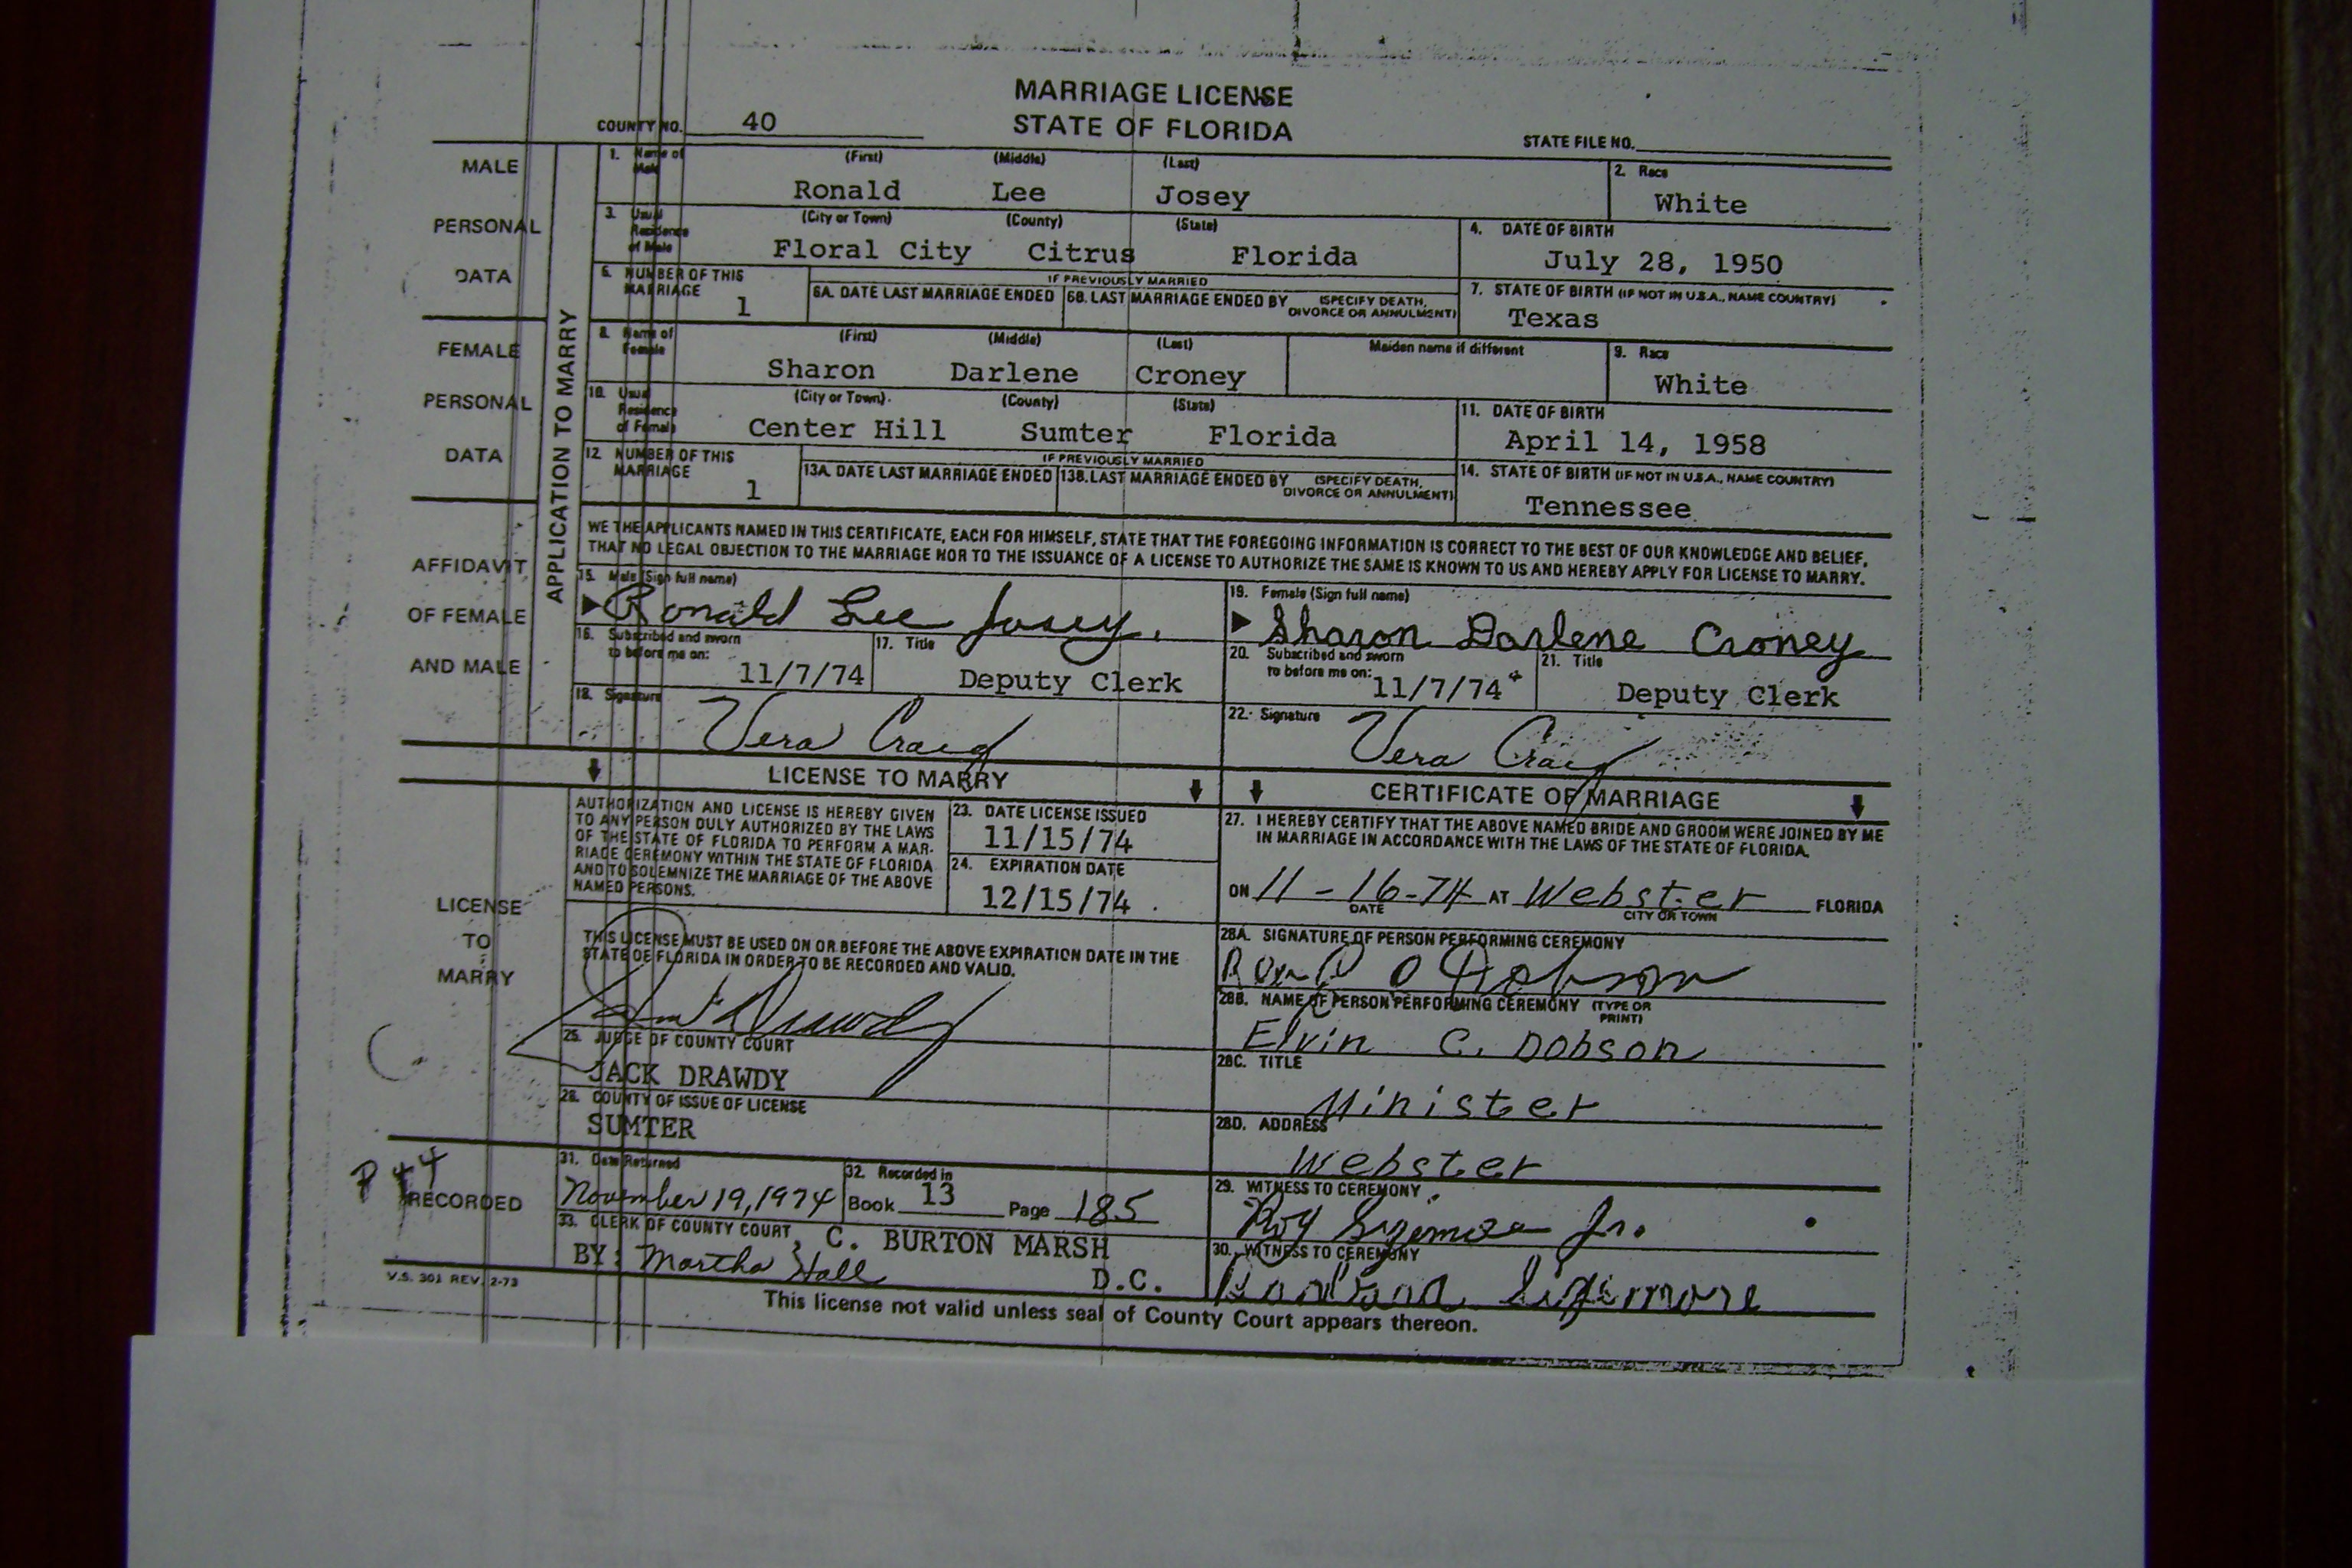 MARRIAGE LICENSE
COUNTY NO. 40 STATE OF FLORIDA STATE FILE NO.
MALE PERSONAL DATA
APPLICATION TO MARRY
1. Name of Male (First) (Middle) (Last) 2. Race
Ronald Lee Josey White
3. Usual Residence of Male (City or Town) (County) (State) 4. DATE OF BIRTH
Floral City Citrus Florida July 28, 1950
NUMBER OF THIS MARRIAGE 1 IF PREVIOUSLY MARRIED
6A. DATE LAST MARRIAGE ENDED 6B. LAST MARRIAGE ENDED BY (SPECIFY DEATH, DIVORCE OR ANNULMENT) 7. STATE OF BIRTH (IF NOT IN U.S.A., NAME COUNTRY)
Texas
FEMALE PERSONAL DATA
8. Name of Female (First) (Middle) (Last) Maiden name if different 9. Race
Sharon Darlene Croney White
10. Usual Residence of Female (City or Town) (County) (State) 11. DATE OF BIRTH
Center Hill Sumter Florida April 14, 1958
12. NUMBER OF THIS MARRIAGE 1 IF PREVIOUSLY MARRIED
13A. DATE LAST MARRIAGE ENDED 13B. LAST MARRIAGE ENDED BY (SPECIFY DEATH, DIVORCE OR ANNULMENT) 14. STATE OF BIRTH (IF NOT IN U.S.A., NAME COUNTRY)
Tennessee
AFFIDAVIT OF FEMALE AND MALE
WE THE APPLICANTS NAMED IN THIS CERTIFICATE, EACH FOR HIMSELF, STATE THAT THE FOREGOING INFORMATION IS CORRECT TO THE BEST OF OUR KNOWLEDGE AND BELIEF,
THAT NO LEGAL OBJECTION TO THE MARRIAGE NOR TO THE ISSUANCE OF A LICENSE TO AUTHORIZE THE SAME IS KNOWN TO US AND HEREBY APPLY FOR LICENSE TO MARRY.
15. Male (Sign full name) 19. Female (Sign full name)
Ronald Lee Josey. Sharon Darlene Croney
16. Subscribed and sworn to before me on: 11/7/74 17. Title Deputy Clerk
20. Subscribed and sworn to before me on: 11/7/74 21. Title Deputy Clerk
18. Signature Vera Craig
22. Signature Vera Craig
LICENSE TO MARRY
LICENSE TO MARRY
AUTHORIZATION AND LICENSE IS HEREBY GIVEN
TO ANY PERSON DULY AUTHORIZED BY THE LAWS
OF THE STATE OF FLORIDA TO PERFORM A MAR-
RIAGE CEREMONY WITHIN THE STATE OF FLORIDA
AND TO SOLEMNIZE THE MARRIAGE OF THE ABOVE
NAMED PERSONS.
23. DATE LICENSE ISSUED
11/15/74
24. EXPIRATION DATE
12/15/74
THIS LICENSE MUST BE USED ON OR BEFORE THE ABOVE EXPIRATION DATE IN THE
STATE OF FLORIDA IN ORDER TO BE RECORDED AND VALID.
25. JUDGE OF COUNTY COURT
JACK DRAWDY
COUNTY OF ISSUE OF LICENSE
SUMTER
CERTIFICATE OF MARRIAGE
27. I HEREBY CERTIFY THAT THE ABOVE NAMED BRIDE AND GROOM WERE JOINED BY ME
IN MARRIAGE IN ACCORDANCE WITH THE LAWS OF THE STATE OF FLORIDA.
ON 11-16-74 AT Webster FLORIDA
DATE CITY OR TOWN
28A. SIGNATURE OF PERSON PERFORMING CEREMONY
Dobson
28B. NAME OF PERSON PERFORMING CEREMONY (TYPE OR PRINT)
Elvin C. Dobson
28C. TITLE
Minister
28D. ADDRESS
Webster
29. WITNESS TO CEREMONY
Roy Jr.
30. WITNESS TO CEREMONY
Sizemore
P 44
RECORDED
31. Date Returned
November 19, 1974
32. Recorded in
Book 13 Page 185
33. CLERK OF COUNTY COURT, C. BURTON MARSH
BY: Martha Hall D.C.
V.S. 301 REV. 2-73
This license not valid unless seal of County Court appears thereon.